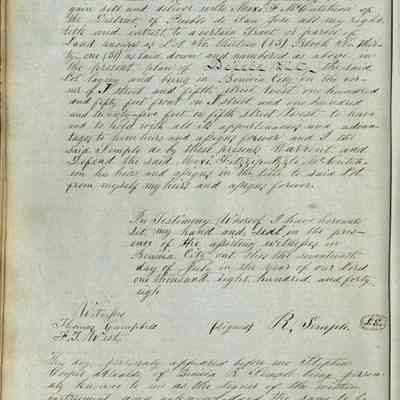 gain sell and deliver unto Maxi F. McCutcheon of
the District of Pueblo de San Jose all my right,
title and interest to a certain Tract or parcel of
Land known as Lot No. thirteen (13) Block No. thir-
ty-one (31) as laid down and numbered as above in
the present plan of Benicia City. The said
Lot laying and being in Benicia City on the cor-
ner of I street and fifth street West one hundred
and fifty feet front on I street and one hundred
and twenty-five feet on fifth street West. to have
and to hold with all its appurtenances and advan-
tages to him heirs and assigns forever and I the
said Semple do by these presents Warrent and
Defend the said Maxi McCutch-
eon his heirs and assigns in the title to said Lot
from myself my heirs and assigns forever.
In Testimony Whereof I have hereunto
set my hand and seal in the pres-
ence of the apending witnesses in
Benicia City on this the seventeenth
day of July in the year of our Lord
one thousand eight hundred and forty
eigh
Witness
Thomas Campbell
F. J. West.
(signed) R. Semple. L.S.
This day personaly appeared before me Stephen
Cooper Alcalde of Benicia R Semple being person-
aly known to me as the signer of the within
instrument and acknowledged the same to be